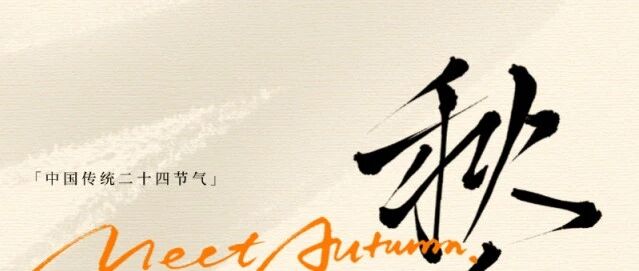 秋
「中国传统二十四节气」
Meet Autumn.